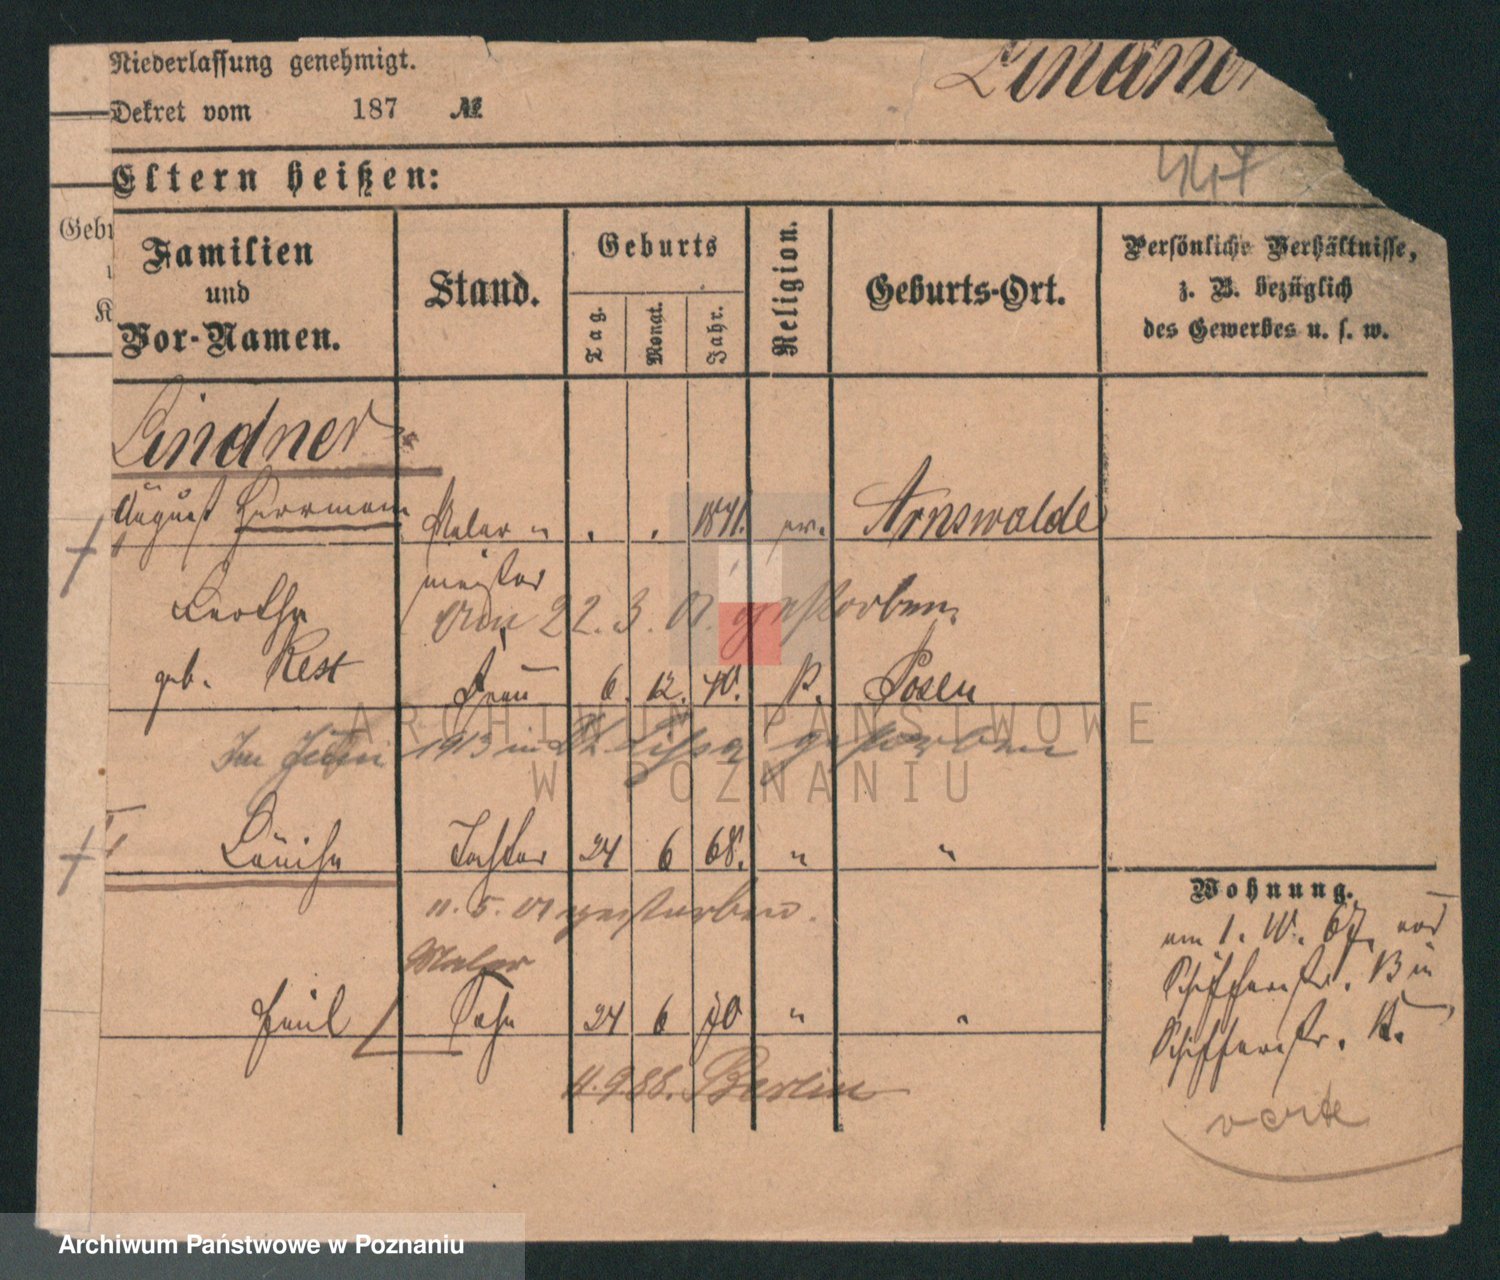 Niederlassung genehmigt.
Lindner
Dekret vom 187 №
447
Eltern heißen:
Gebu
Familien und Vor-Namen.
Stand.
Geburts
Tag.
Monat.
Jahr.
Religion.
Geburts-Ort.
Persönliche Verhältnisse,
z. B. bezüglich
des Gewerbes u. s. w.
K
Lindner
August Herrmann Maler " . . 1841. ev. Arnswalde
meister
Bertha
22. 3. 01. gestorben.
geb. Rest Frau 6. 12. 40. K. Posen
Im Juni 1913 in Lissa gestorben
Louise Tochter 24 6 68. " "
11. 5. 01 gestorben.
Maler
Paul Sohn 24 6 70 " "
4.9.88. Berlin
Wohnung.
am 1. 67.
Schifferstr. B in
Schifferstr.
verte
ARCHIWUM PAŃSTWOWE
W POZNANIU
Archiwum Państwowe w Poznaniu